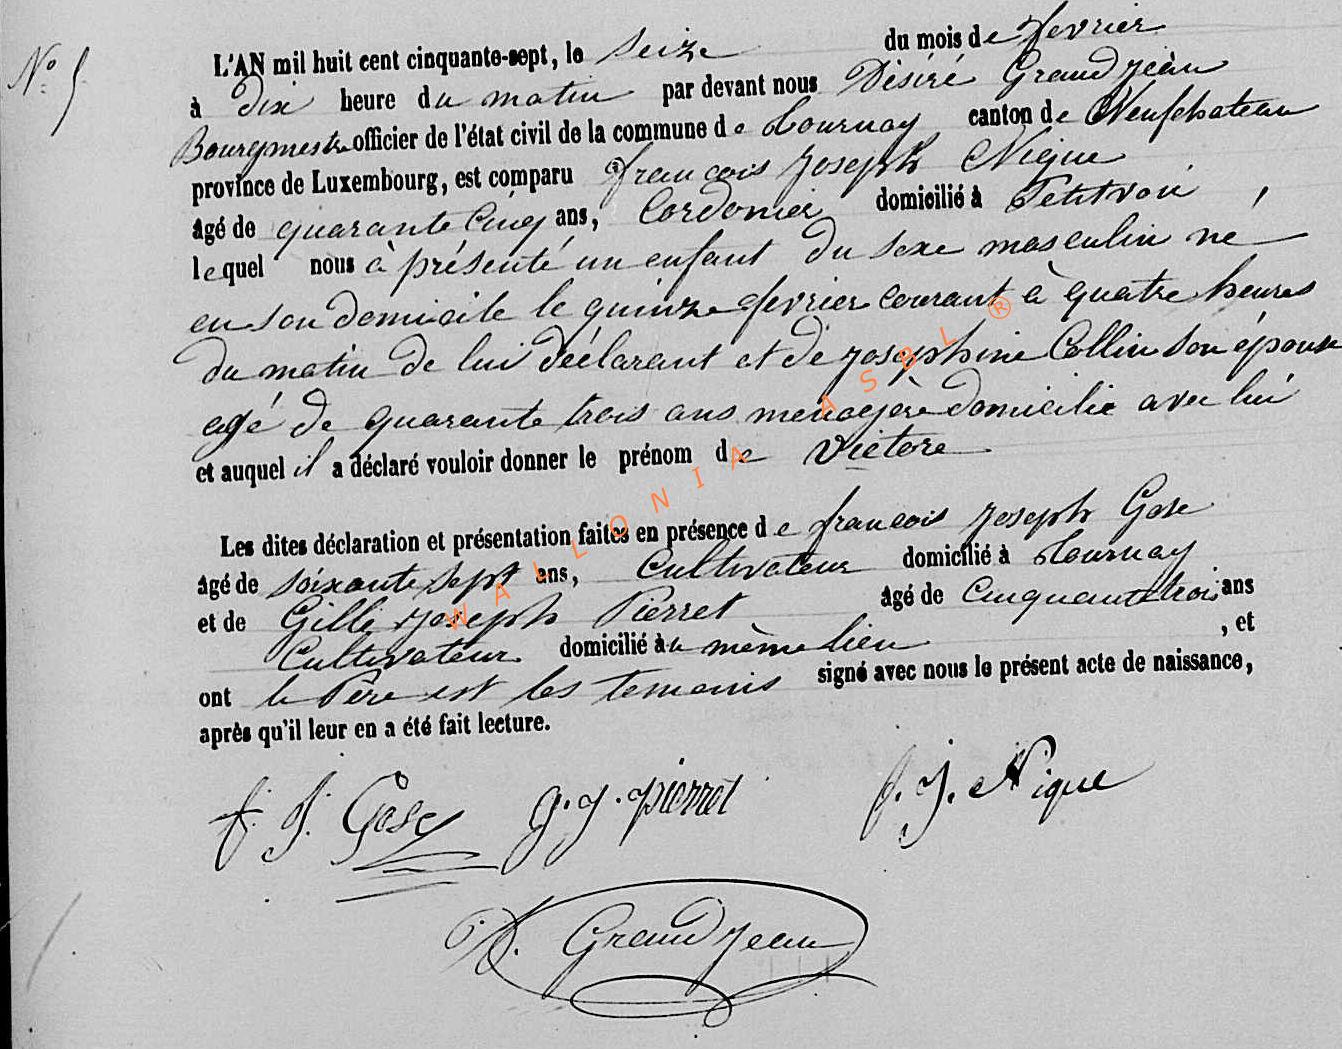 N° 5
L'AN mil huit cent cinquante-sept, le seize du mois de fevrier
à dix heure du matin par devant nous Désiré Grandjean
Bourgmestre officier de l'état civil de la commune de Tournay canton de Neufchateau
province de Luxembourg, est comparu françois Joseph Nique
âgé de quarante cinq ans, Cordonier domicilié à Petitvoir ,
lequel nous à présenté un enfant du sexe masculin né
en son domicile le quinze fevrier courant à quatre heures
du matin de lui déclarant et de josephine Collin son épouse
agé de quarante trois ans menagère domicilie avec lui
et auquel il a déclaré vouloir donner le prénom de Victore
Les dites déclaration et présentation faites en présence de françois Joseph Gose
âgé de soixante sept ans, Cultivateur domicilié à Tournay
et de Gille Joseph Pierret âgé de Cinquante trois ans
Cultivateur domicilié au même lieu , et
ont le Père est les temoins signé avec nous le présent acte de naissance,
après qu'il leur en a été fait lecture.
f. J. Gose g. j. pierret f. J. Nique
D. Grandjean
WALLONIA ASBL ®